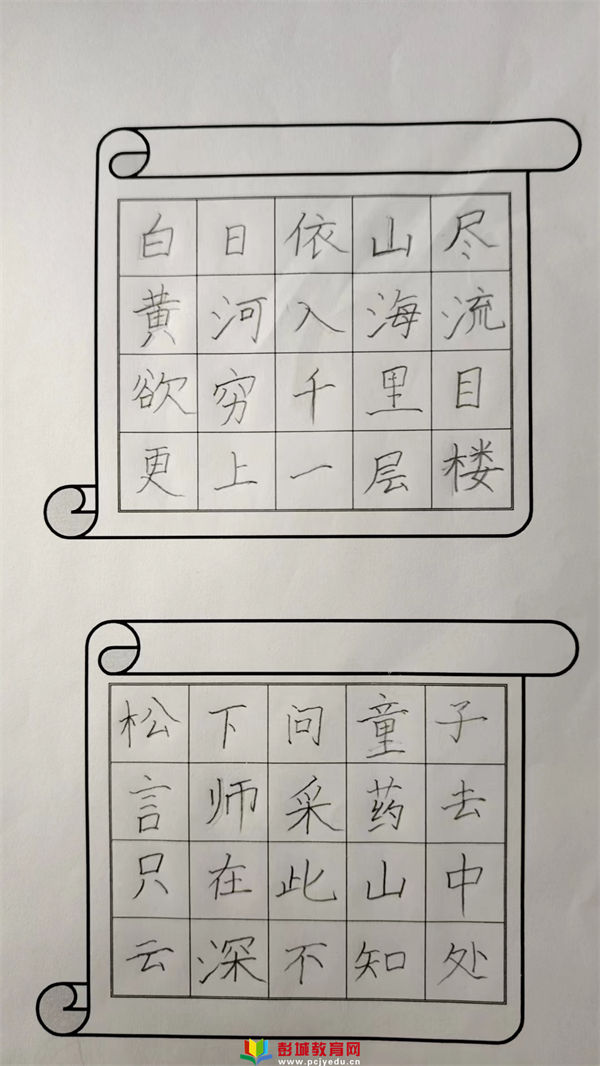 白日依山尽
黄河入海流
欲穷千里目
更上一层楼
松下问童子
言师采药去
只在此山中
云深不知处
彭城教育网
www.pcjyedu.cn